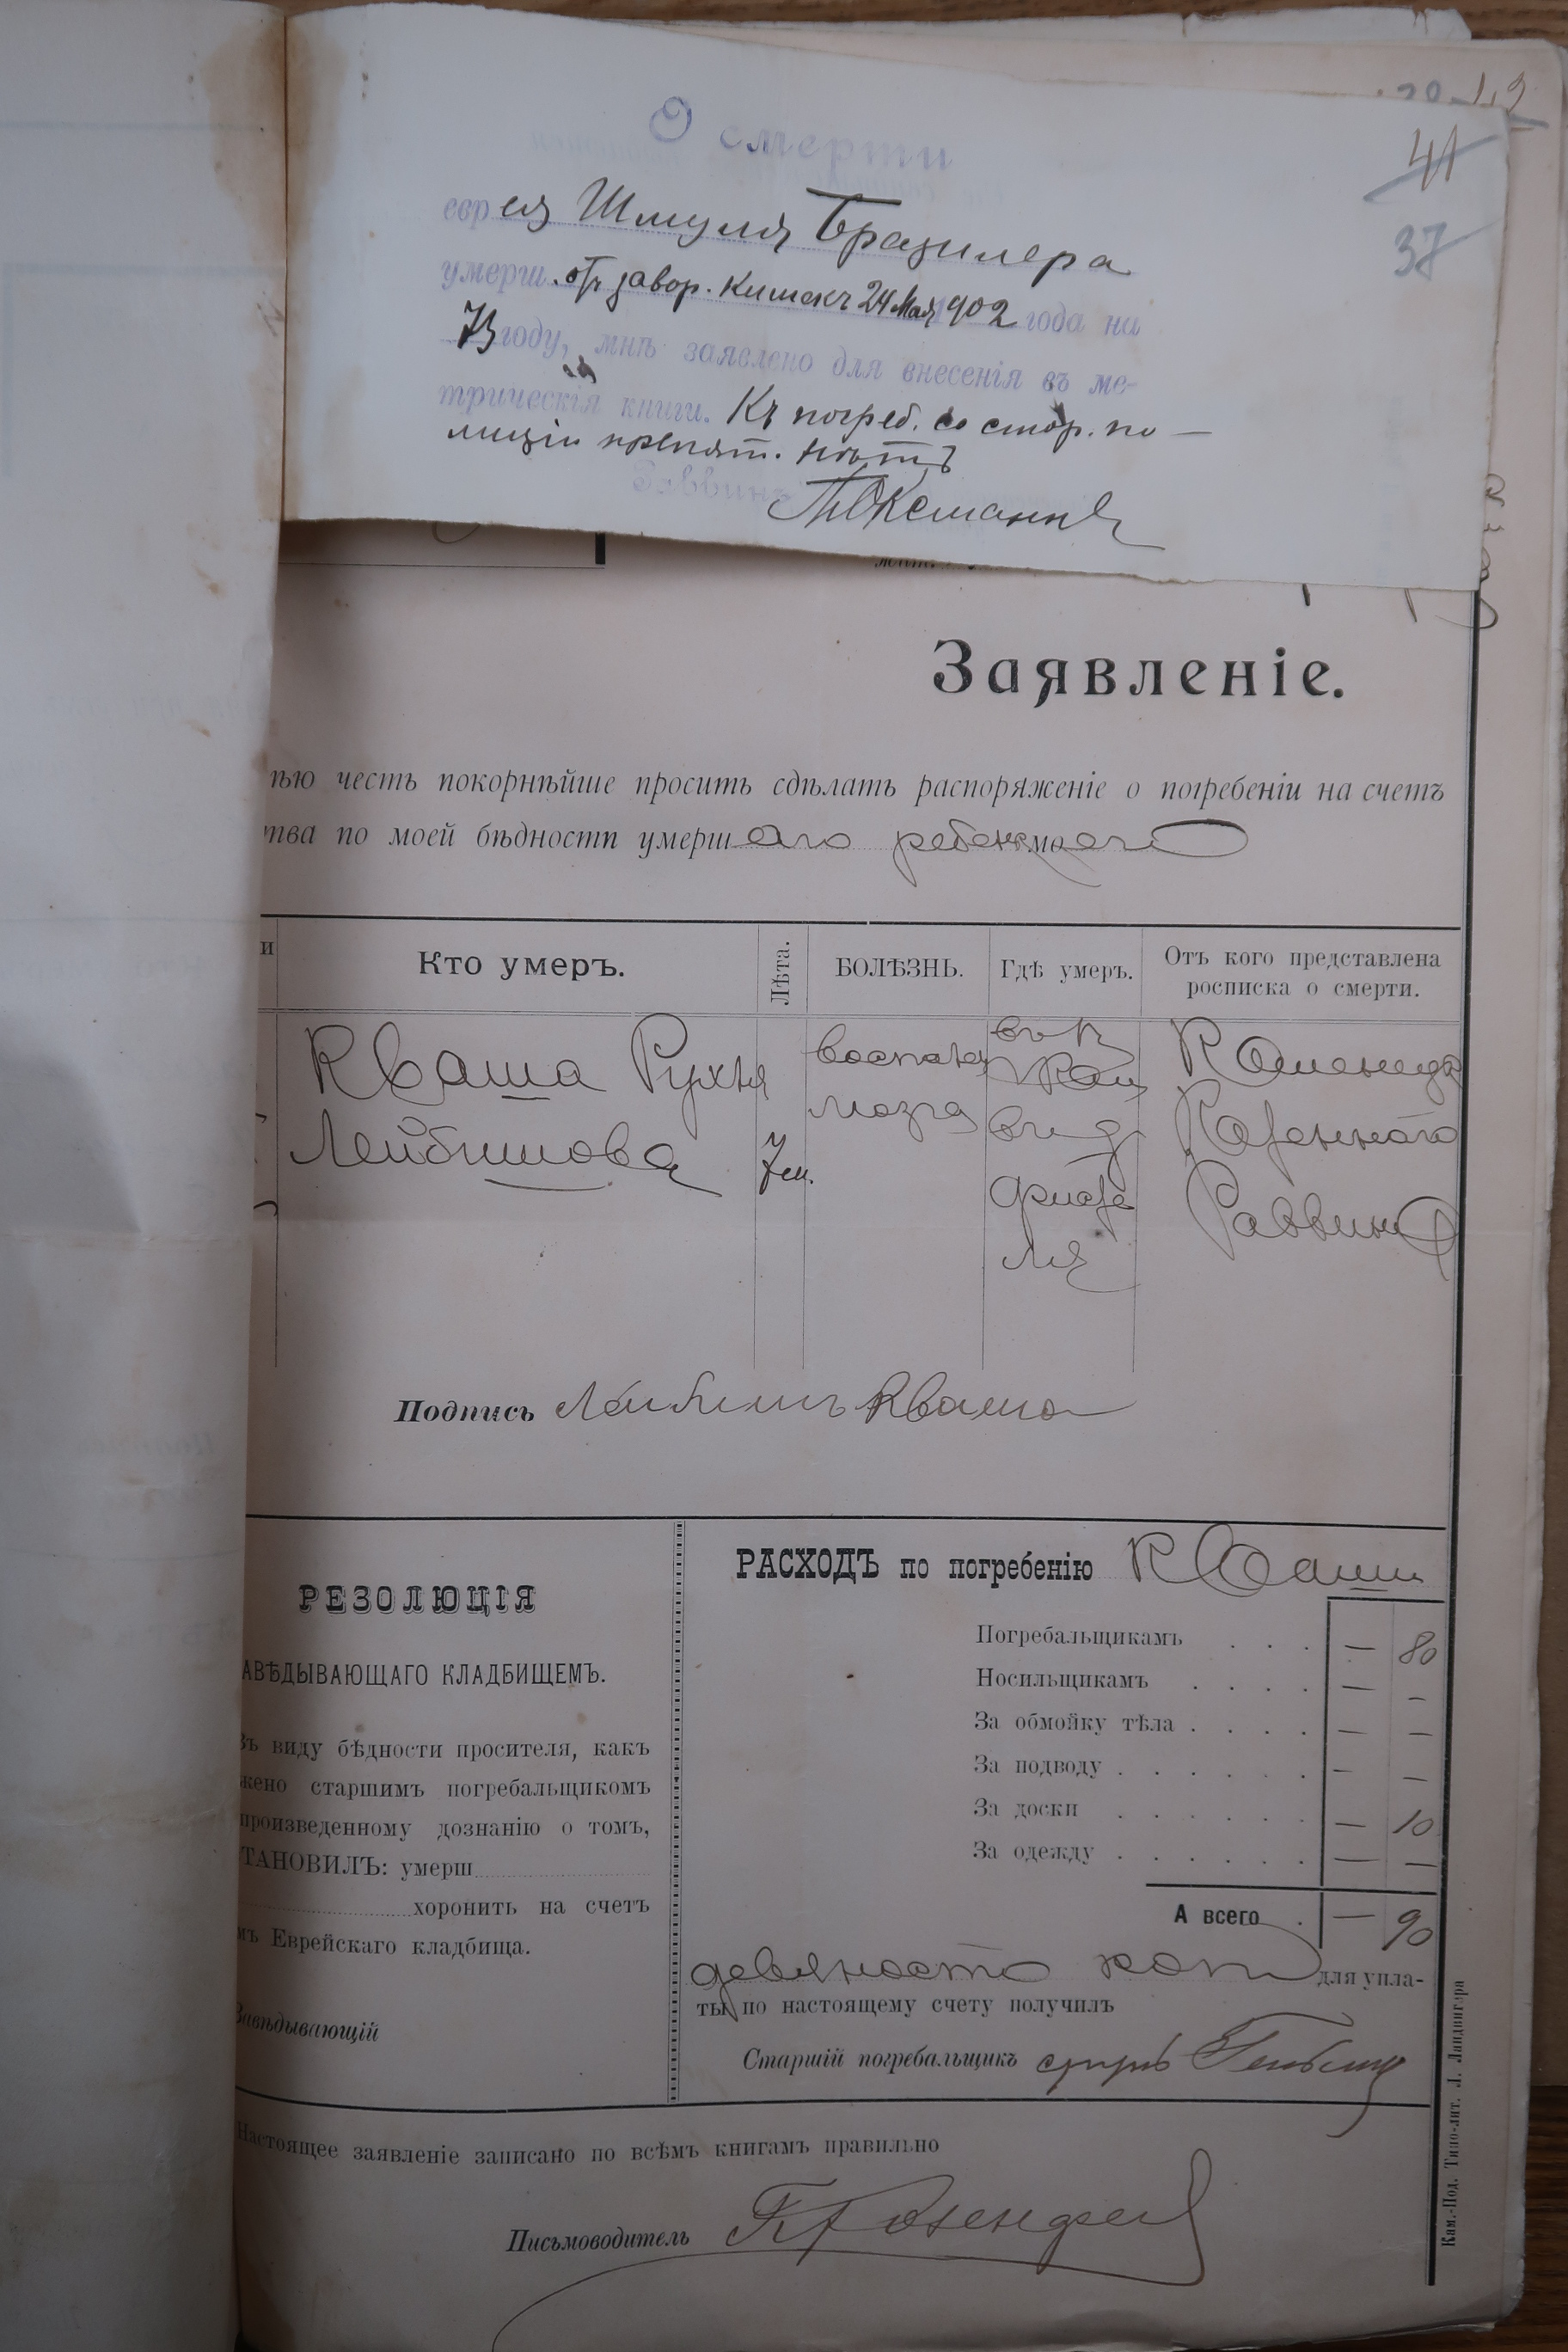 О смерти
еврея Шмуля Бразилера
умерш. отъ завор. кишекъ 24 мая 902 года на
73 году, мнѣ заявлено для внесенія въ ме-
трическія книги. Къ погреб. со стор. по-
лиціи препят. нѣтъ
Раввинъ
41
37
Заявленіе.
тью честь покорнѣйше просить сдѣлать распоряженіе о погребеніи на счетъ
тва по моей бѣдности умершаго ребенка моего
и
Кто умеръ.
Лѣта.
БОЛѢЗНЬ.
Гдѣ умеръ.
Отъ кого представлена
росписка о смерти.
Кваша Рухля
Лейбишова
7 м.
воспален
мозга
Каменецк
Казеннаго
Раввина
Подпись Лейбишъ Кваша
РЕЗОЛЮЦІЯ
АВѢДЫВАЮЩАГО КЛАДБИЩЕМЪ.
Въ виду бѣдности просителя, какъ
жено старшимъ погребальщикомъ
произведенному дознанію о томъ,
ТАНОВИЛЪ: умерш
хоронить на счетъ
мъ Еврейскаго кладбища.
Завѣдывающій
РАСХОДЪ по погребенію Кваши
Погребальщикамъ . . . — 80
Носильщикамъ . . . . — —
За обмойку тѣла . . . . — —
За подводу . . . . . . — —
За доски . . . . . . — 10
За одежду . . . . . . — —
А всего . — 90
девяносто коп для упла-
ты по настоящему счету получилъ
Старшій погребальщикъ
Настоящее заявленіе записано по всѣмъ книгамъ правильно
Письмоводитель
Кам.-Под. Типо-лит. Л. Ландвигера